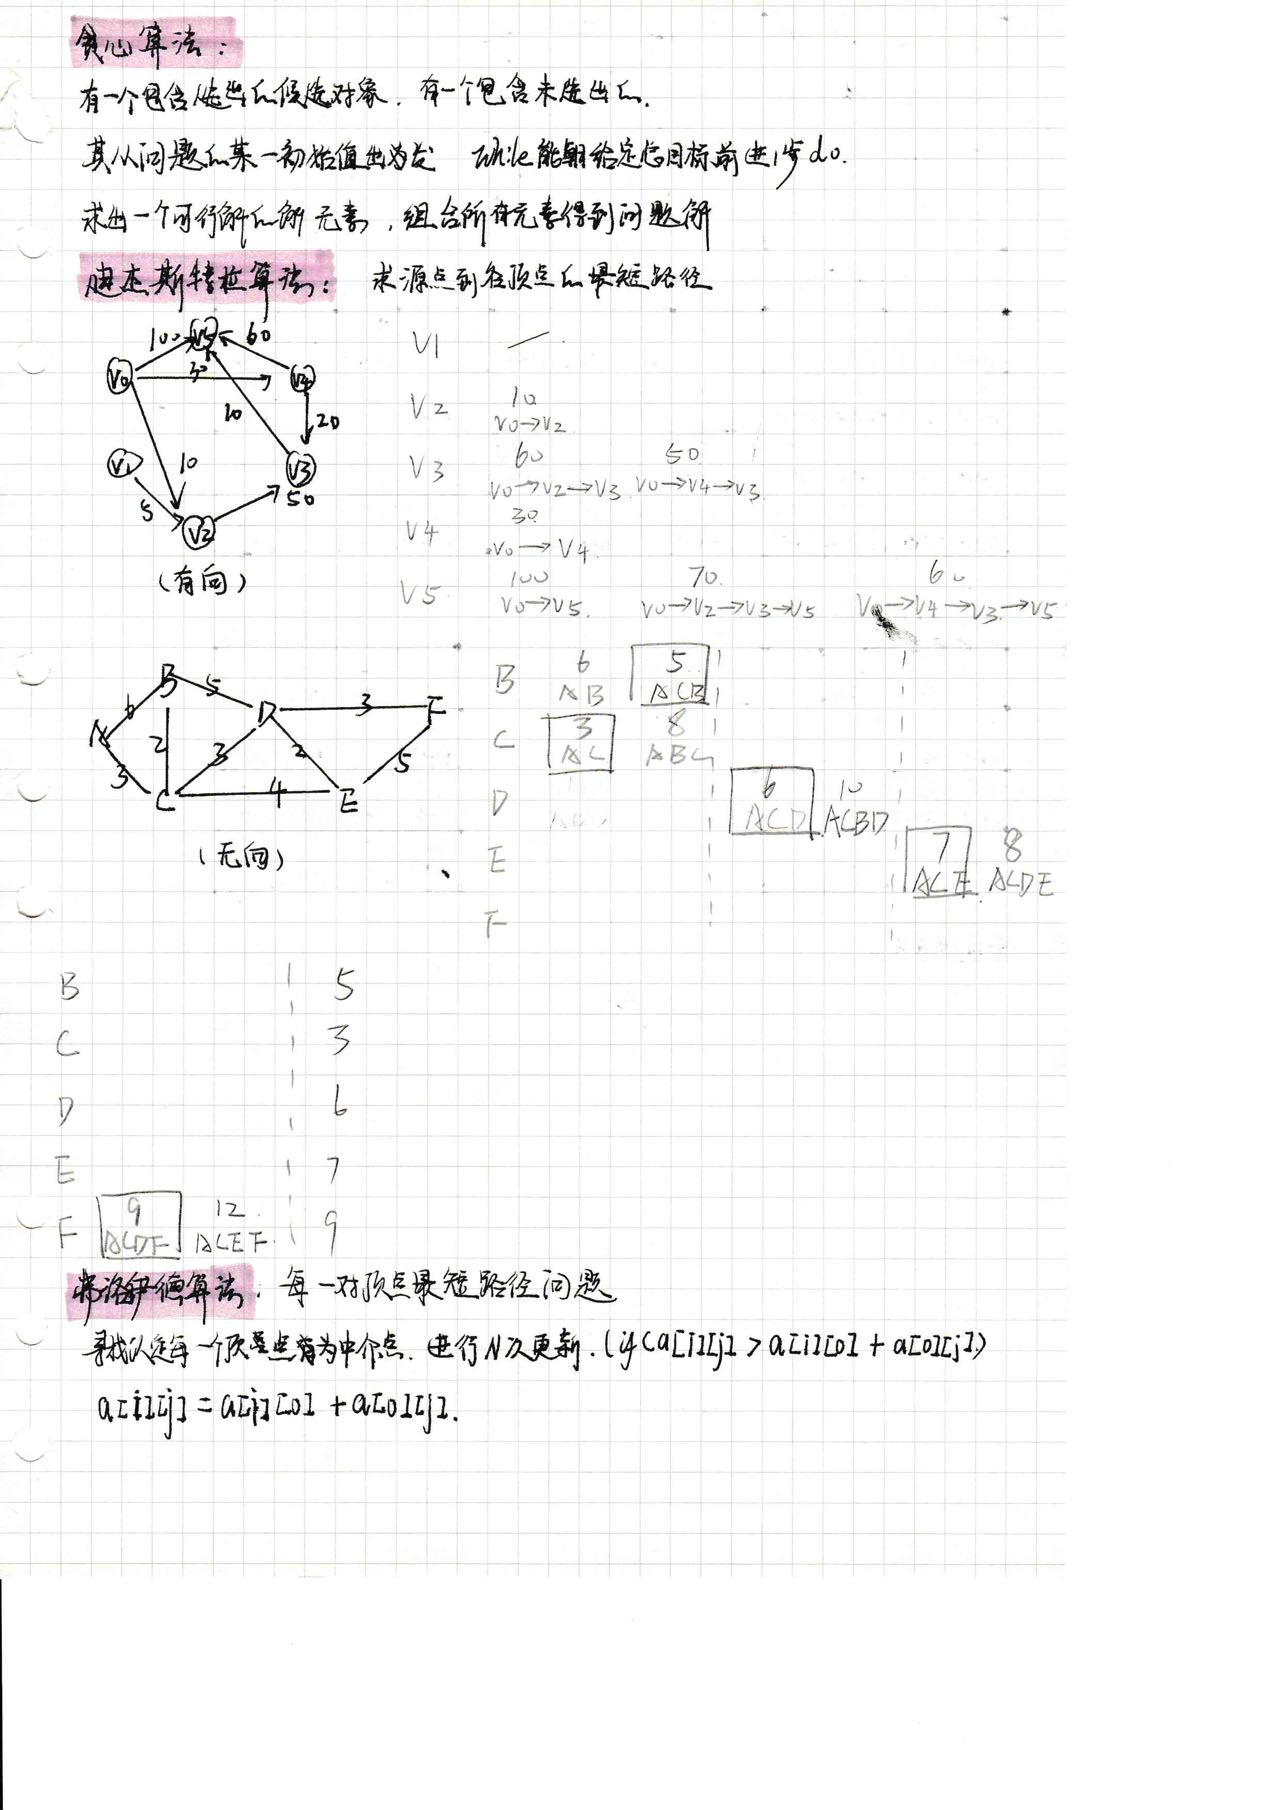 贪心算法：
有一个包含选出的候选对象，有一个包含未选出的.
其从问题的某一初始值出发 while 能朝给定总目标前进1步 do.
求出一个可行解的解元素，组合所有元素得到问题解
迪杰斯特拉算法： 求源点到各顶点的最短路径
100 V5 60
V0 30 V4
10 20
V1 10 V3
5 V2 50
(有向)
V1 —
V2 10
V0→V2
V3 60 50
V0→V2→V3 V0→V4→V3
V4 30
V0→V4
V5 100 70 60
V0→V5 V0→V2→V3→V5 V0→V4→V3→V5
B 5 D 3 F
6 2 3 2 5
A 3 C 4 E
(无向)
B 6 5
AB ACB
C 3 8
AC ABC
D 6 10
ABD ACD ACBD
E 7 8
ACE ACDE
F
B 5
C 3
D 6
E 7
F 9 12 9
ACDF ACEF
弗洛伊德算法：每一对顶点最短路径问题
每一个顶点为中介点. 进行N次更新. (if(a[i][j] > a[i][0] + a[0][j])
a[i][j] = a[i][0] + a[0][j].